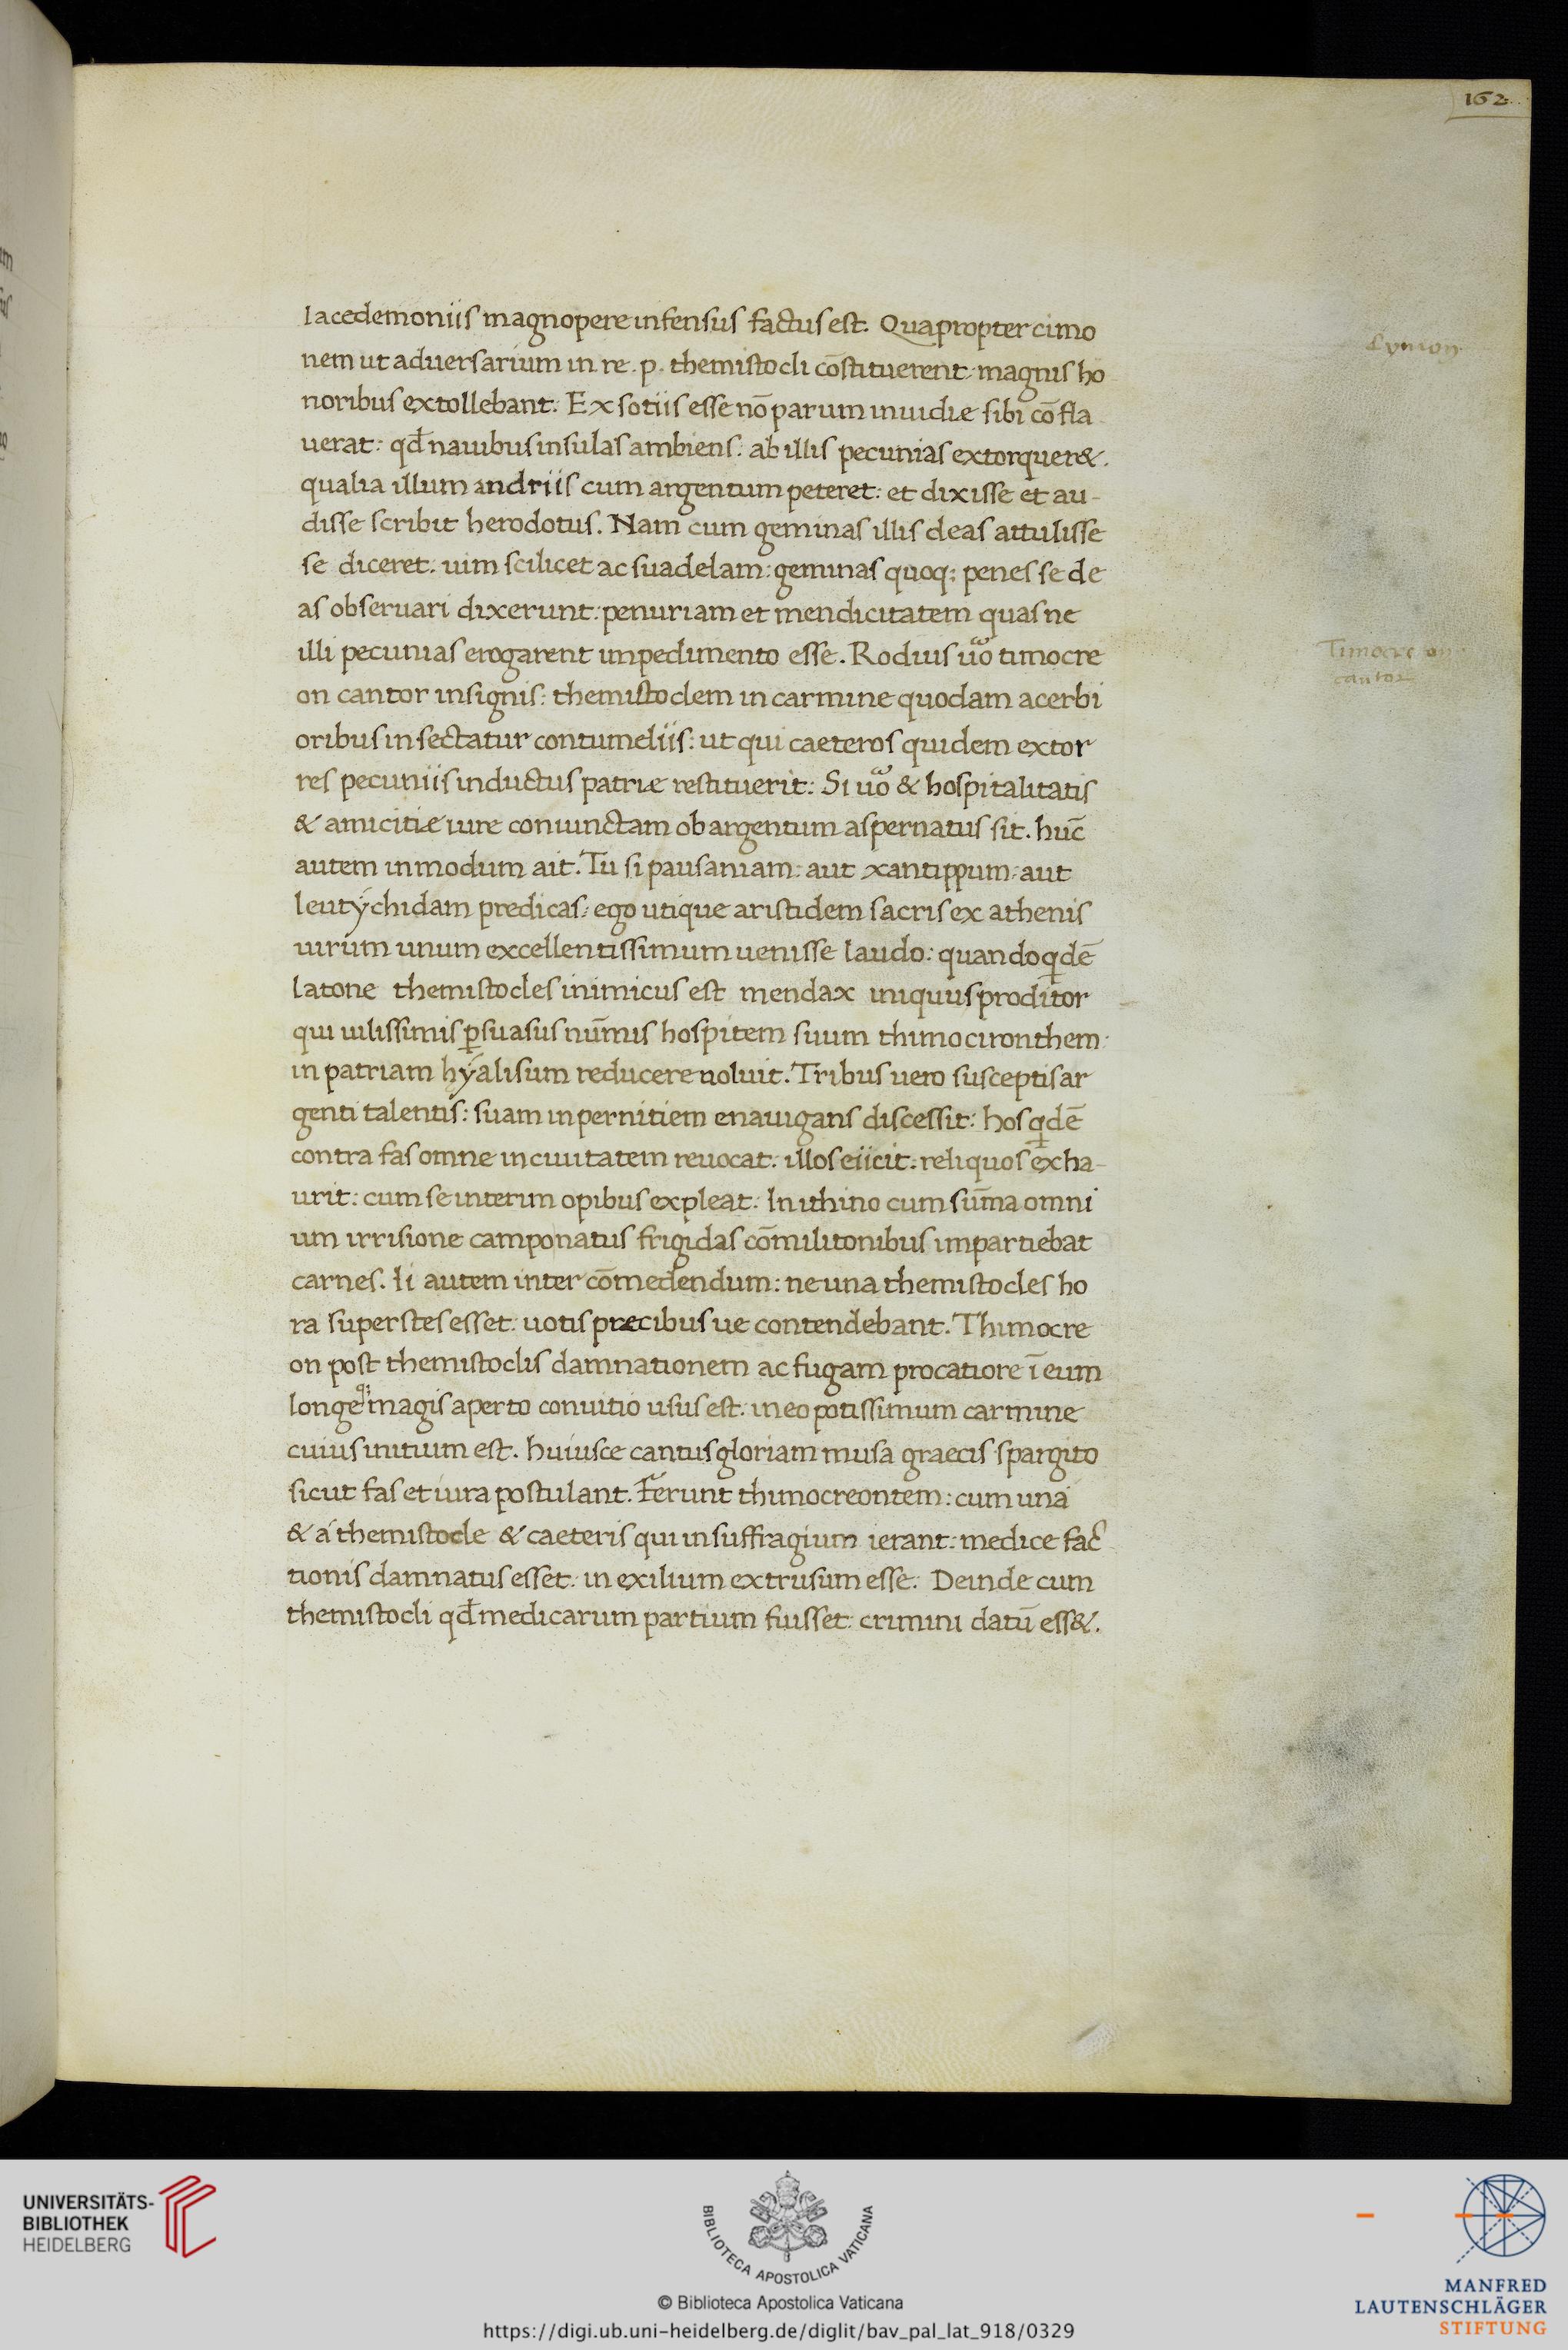 162
lacedemoniis magnopere infensus factus est. Quapropter cimo
Cymon
nem ut aduersarium in re . p . themistocli cōstituerent: magnis ho
noribus extollebant: Ex sotiis esse nō parum inuidiæ sibi cōfla
uerat: qđ nauibus insulas ambiens: ab illis pecunias extorquer&.
qualia illum andriis cum argentum peteret: et dixisse et au-
disse scribit herodotus. Nam cum geminas illis deas attulisse
se diceret: uim scilicet ac suadelam: geminas quoq; penes se de
as obseruari dixerunt: penuriam et mendicitatem quas ne
illi pecunias erogarent impedimento esse. Rodius uō timocre
Timocreon
cantor
on cantor insignis: themistoclem in carmine quodam acerbi
oribus insectatur contumeliis: ut qui caeteros quidem extor
res pecuniis inductus patriæ restituerit: Si uō & hospitalitatis
& amicitiæ iure coniunctam ob argentum aspernatus sit. hūc
autem in modum ait. Tu si pausaniam: aut xantippum: aut
leutýchidam predicas: ego utique aristidem sacris ex athenis
uirum unum excellentissimum uenisse laudo: quandoqdē
latone themistocles inimicus est mendax iniquus proditor
qui uilissimis ꝑsuasus nūmis hospitem suum thimocironthem:
in patriam hýalisum reducere noluit. Tribus uero susceptis ar
genti talentis: suam in pernitiem enauigans discessit: hos qdē
contra fas omne in ciuitatem reuocat: illos eiicit: reliquos exha-
urit: cum se interim opibus expleat: In ithino cum sūma omni
um irrisione camponatus frigidas cōmilitonibus impartiebat
carnes. Ii autem inter cōmedendum: ne una themistocles ho
ra superstes esset: uotis præcibus ue contendebant. Thimocre
on post themistoclis damnationem ac fugam procatiore ī eum
longeq; magis aperto conuitio usus est: in eo potissimum carmine
cuius initium est. huiusce cantus gloriam musa graecis spargito
sicut fas et iura postulant. Ferunt thimocreontem: cum una
& a themistocle & caeteris qui in suffragium ierant: medice fac
tionis damnatus esset: in exilium extrusum esse. Deinde cum
themistocli qđ medicarum partium fuisset: crimini datū ess&.
UNIVERSITÄTS-
BIBLIOTHEK
HEIDELBERG
BIBLIOTECA APOSTOLICA VATICANA
© Biblioteca Apostolica Vaticana
https://digi.ub.uni-heidelberg.de/diglit/bav_pal_lat_918/0329
MANFRED
LAUTENSCHLÄGER
STIFTUNG